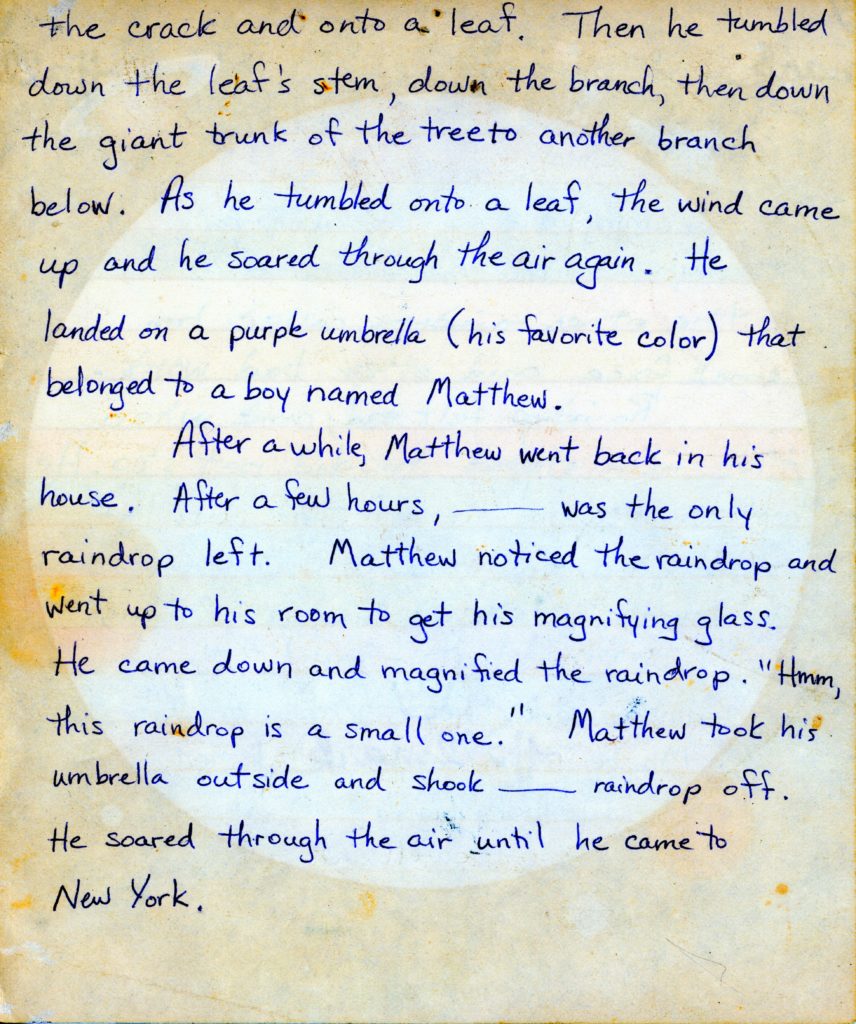 the crack and onto a leaf. Then he tumbled
down the leaf's stem, down the branch, then down
the giant trunk of the tree to another branch
below. As he tumbled onto a leaf, the wind came
up and he soared through the air again. He
landed on a purple umbrella (his favorite color) that
belonged to a boy named Matthew.
After a while, Matthew went back in his
house. After a few hours, ____ was the only
raindrop left. Matthew noticed the raindrop and
went up to his room to get his magnifying glass.
He came down and magnified the raindrop. "Hmm,
this raindrop is a small one." Matthew took his
umbrella outside and shook ____ raindrop off.
He soared through the air until he came to
New York.